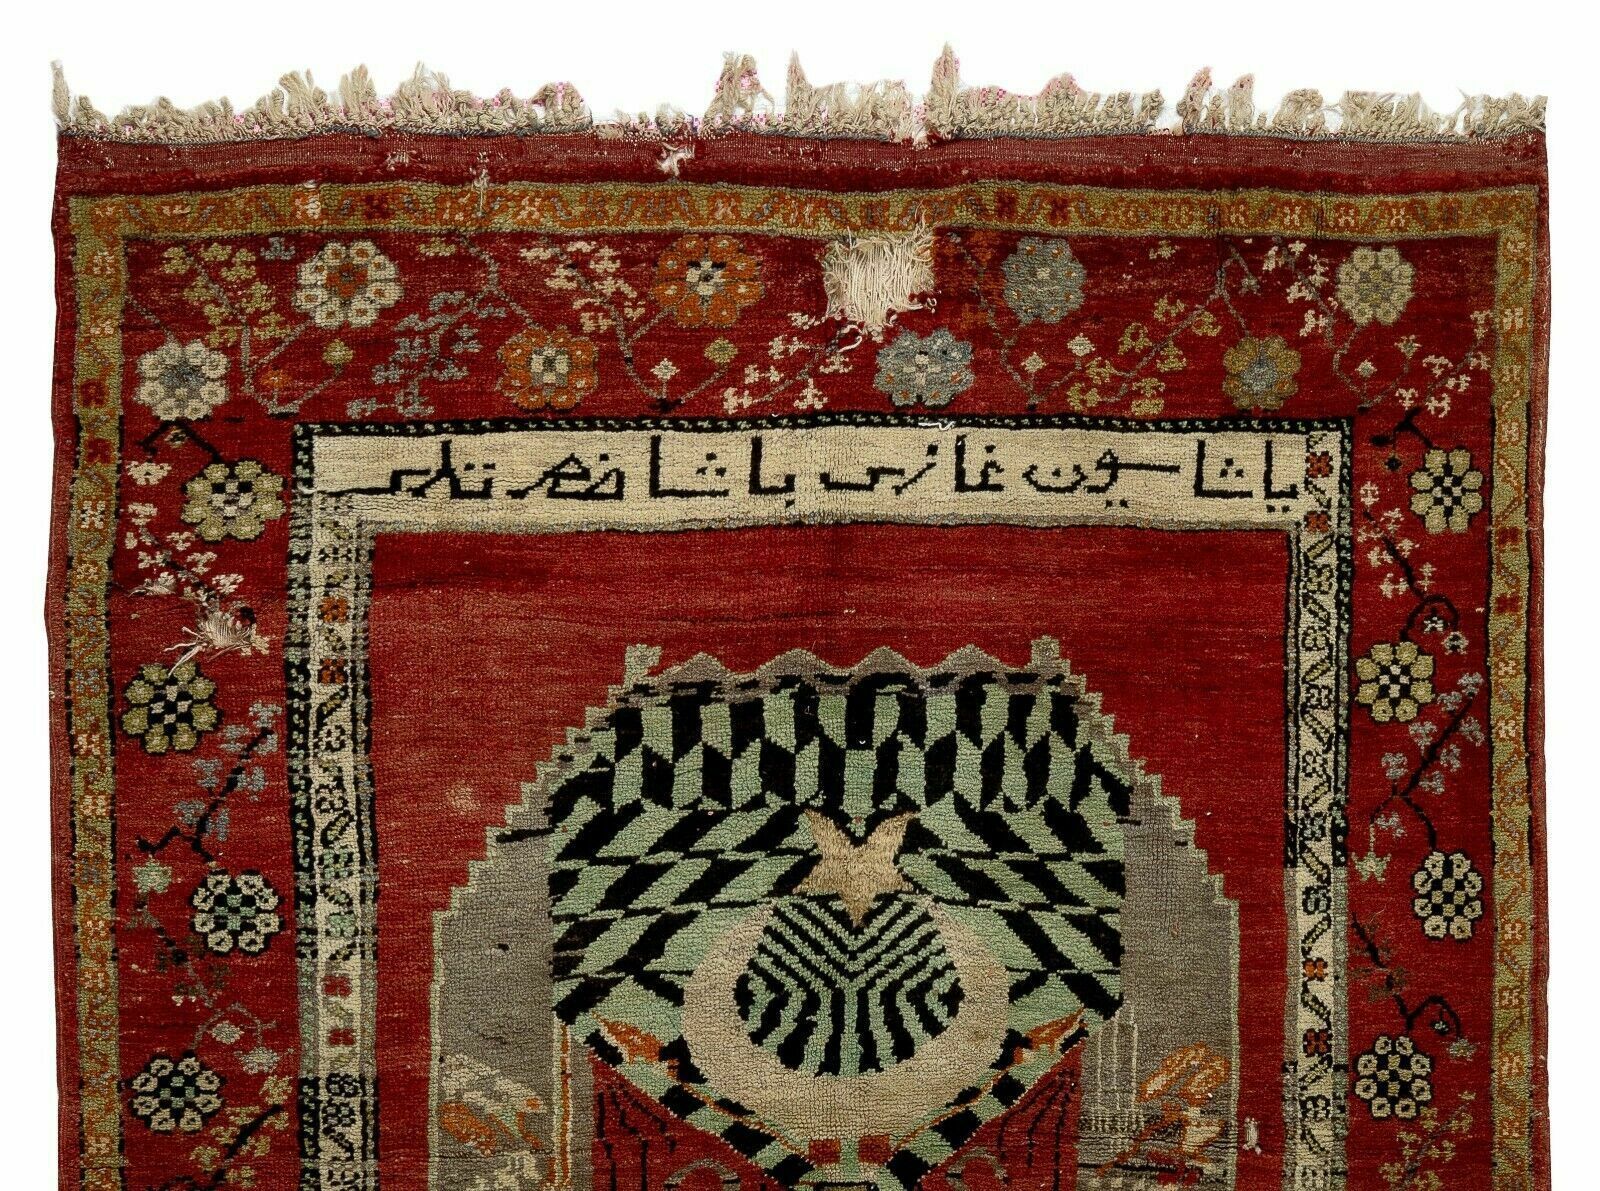 ياشاسون غازى پاشا حضرتلرى